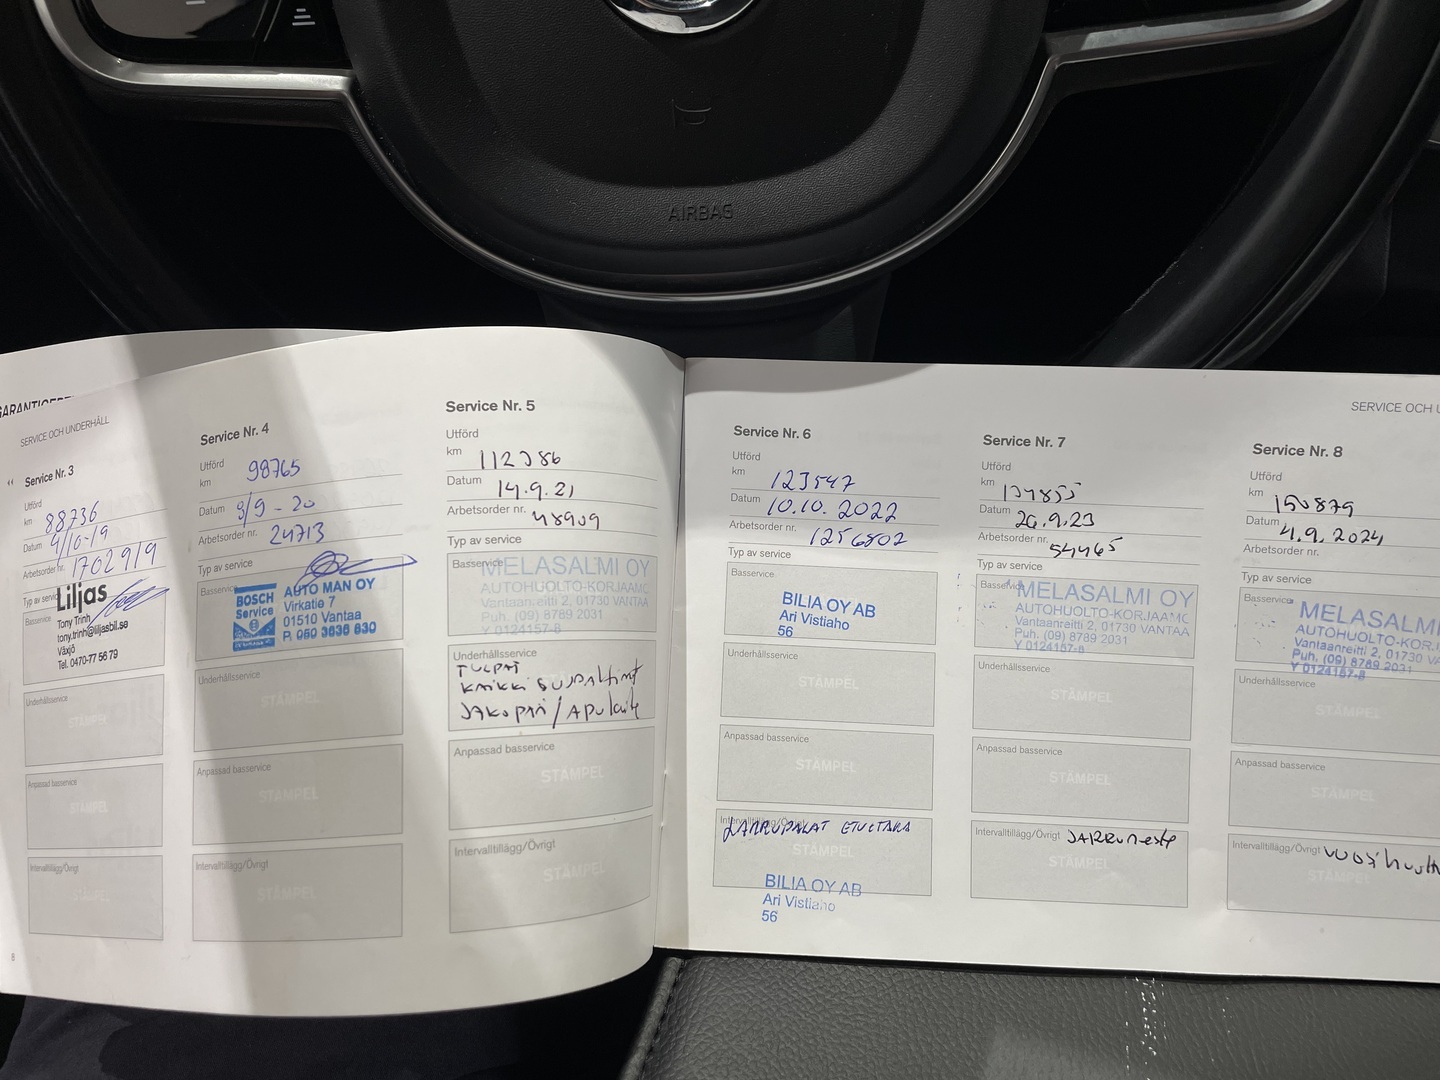 AIRBAG
SERVICE OCH UNDERHÅLL
Service Nr. 3
Utförd
km 88736
Datum 9/10-19
Arbetsorder nr. 1702919
Typ av service
Basservice
Liljas
Tony Trinh
tony.trinh@liljasbil.se
Växjö
Tel. 0470-77 56 79
Underhållsservice
STÄMPEL
Anpassad basservice
STÄMPEL
Intervalltillägg/Övrigt
STÄMPEL
8
Service Nr. 4
Utförd
km 98765
Datum 9/9-20
Arbetsorder nr. 24713
Typ av service
Basservice
BOSCH
Service
AUTO MAN OY
Virkatie 7
01510 Vantaa
P. 050 3636 830
Underhållsservice
STÄMPEL
Anpassad basservice
STÄMPEL
Intervalltillägg/Övrigt
STÄMPEL
Service Nr. 5
Utförd
km 112386
Datum 14.9.21
Arbetsorder nr. 48909
Typ av service
Basservice
MELASALMI OY
AUTOHUOLTO-KORJAAMO
Vantaanreitti 2, 01730 VANTAA
Puh. (09) 8789 2031
Y 0124157-8
Underhållsservice
TULPAT
KAIKKI SUODATTIMET
JAKOPÄÄ/APULAITE
Anpassad basservice
STÄMPEL
Intervalltillägg/Övrigt
STÄMPEL
Service Nr. 6
Utförd
km 123547
Datum 10.10.2022
Arbetsorder nr. 1256802
Typ av service
Basservice
BILIA OY AB
Ari Vistiaho
56
Underhållsservice
STÄMPEL
Anpassad basservice
STÄMPEL
Intervalltillägg/Övrigt
JARRUPALAT ETU&TAKA
STÄMPEL
BILIA OY AB
Ari Vistiaho
56
SERVICE OCH U
Service Nr. 7
Utförd
km 134855
Datum 26.9.23
Arbetsorder nr. 54465
Typ av service
Basservice
MELASALMI OY
AUTOHUOLTO-KORJAAMO
Vantaanreitti 2, 01730 VANTAA
Puh. (09) 8789 2031
Y 0124157-8
Underhållsservice
STÄMPEL
Anpassad basservice
STÄMPEL
Intervalltillägg/Övrigt JARRUneste
STÄMPEL
Service Nr. 8
Utförd
km 150879
Datum 4.9.2024
Arbetsorder nr.
Typ av service
Basservice
MELASALMI
AUTOHUOLTO-KOR
Vantaanreitti 2, 01730 VA
Puh. (09) 8789 2031
Y 0124157-8
Underhållsservice
STÄMPEL
Anpassad basservice
STÄMPEL
Intervalltillägg/Övrigt vuosihuolto
STÄMPEL